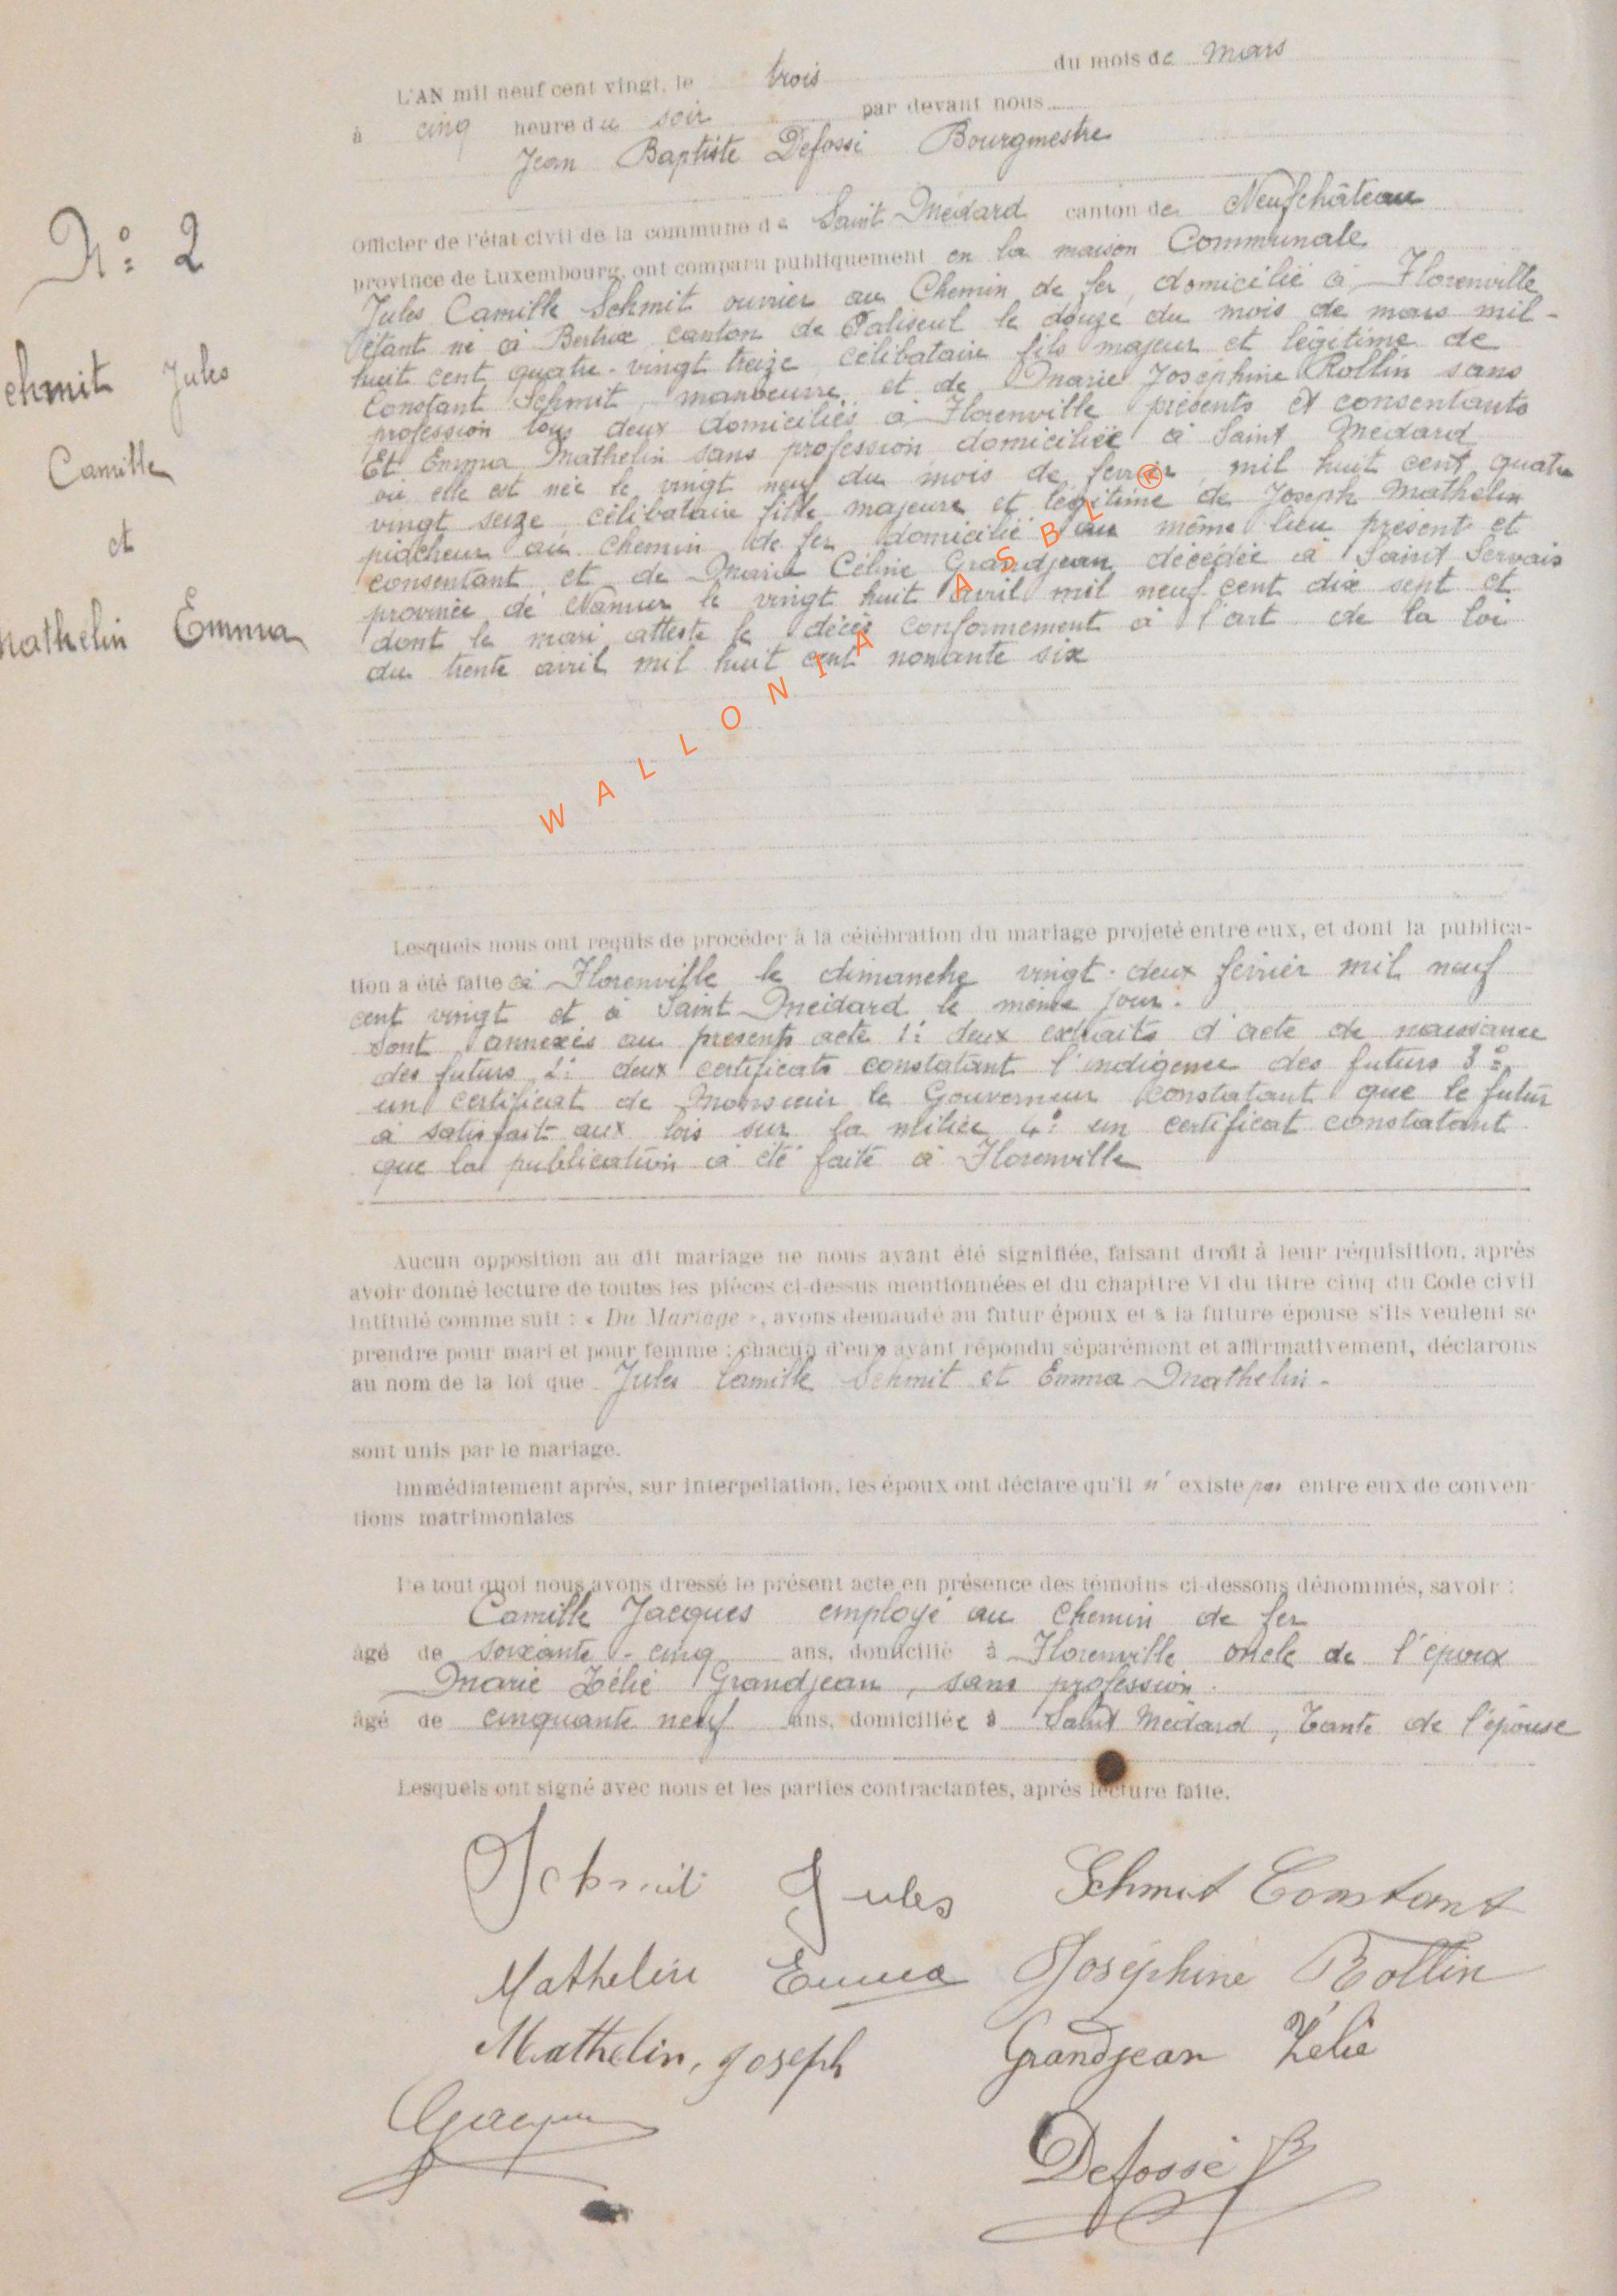 L'AN mil neuf cent vingt, le trois du mois de mars
à cinq heure du soir par devant nous
Jean Baptiste Defossé Bourgmestre
Officier de l'état civil de la commune de Saint Médard canton de Neufchâteau
province de Luxembourg, ont comparu publiquement en la maison Communale
Jules Camille Schmit ouvrier au Chemin de fer, domicilié à Florenville
étant né à Bertrix canton de Paliseul le douze du mois de mars mil-
huit cent quatre-vingt treize, célibataire fils majeur et légitime de
Constant Schmit, manoeuvre, et de Marie Josephine Rollin sans
profession tous deux domiciliés à Florenville présents et consentants
Et Emma Mathelin sans profession domiciliée à Saint Médard
où elle est née le vingt neuf du mois de février mil huit cent quatre
vingt seize, célibataire fille majeure et légitime de Joseph Mathelin
piocheur au chemin de fer domicilié au même lieu présent et
consentant et de Marie Céline Grandjean décédée à Saint Servais
province de Namur le vingt huit avril mil neuf cent dix sept et
dont le mari atteste le décès conformement à l'art de la loi
du trente avril mil huit cent nonante six
N° 2
Schmit Jules
Camille
et
Mathelin Emma
WALLONIA ASBL ®
Lesquels nous ont requis de procéder à la célébration du mariage projeté entre eux, et dont la publica-
tion a été faite à Florenville le dimanche vingt-deux février mil neuf
cent vingt et à Saint Médard le même jour.
Sont annexés au present acte 1° deux extraits d'acte de naissance
des futurs 2° deux certificats constatant l'indigence des futurs 3°
un certificat de Monsieur le Gouverneur constatant que le futur
a satisfait aux lois sur la milice 4° un certificat constatant
que la publication a été faite à Florenville
Aucun opposition au dit mariage ne nous ayant été signifiée, faisant droit à leur réquisition, après
avoir donné lecture de toutes les pièces ci-dessus mentionnées et du chapitre VI du titre cinq du Code civil
intitulé comme suit : « Du Mariage », avons demandé au futur époux et à la future épouse s'ils veulent se
prendre pour mari et pour femme ; chacun d'eux ayant répondu séparément et affirmativement, déclarons
au nom de la loi que Jules Camille Schmit et Emma Mathelin.
sont unis par le mariage.
Immédiatement après, sur interpellation, les époux ont déclaré qu'il n'existe pas entre eux de conven-
tions matrimoniales
De tout quoi nous avons dressé le présent acte en présence des témoins ci-dessons dénommés, savoir :
Camille Jacques employé au Chemin de fer
âgé de soixante-cinq ans, domicilié à Florenville oncle de l'époux
Marie Zélie Grandjean, sans profession.
âgé de cinquante neuf ans, domiciliée à Saint Médard, Tante de l'épouse
Lesquels ont signé avec nous et les parties contractantes, après lecture faite.
Schmit Jules Schmit Constant
Mathelin Emma Joséphine Rollin
Mathelin, Joseph Grandjean Zélie
CJacques Defossé JB